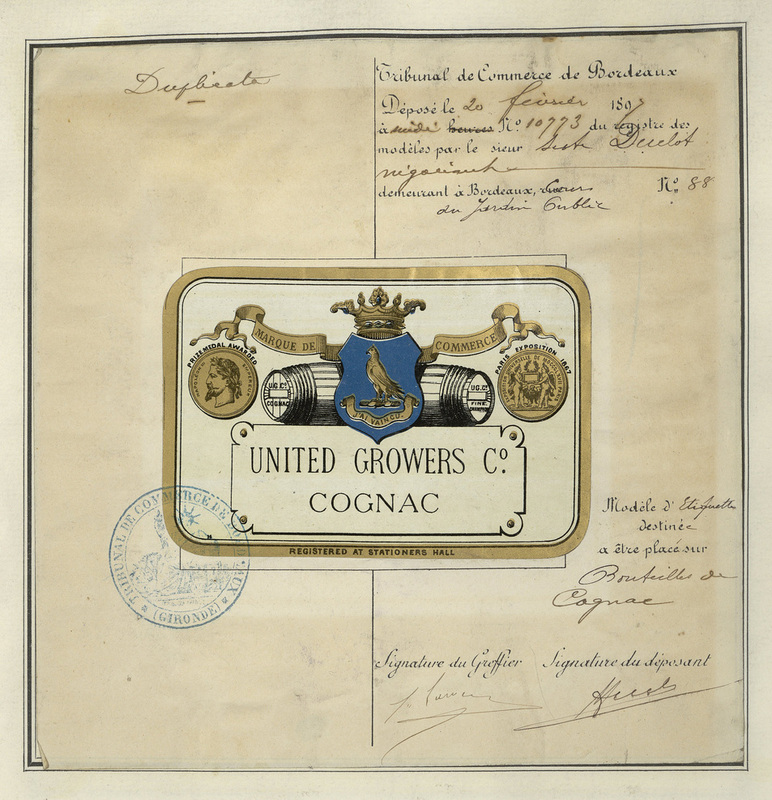 Duplicata
Tribunal de Commerce de Bordeaux
Déposé le 20 février 1897
à midi heures N° 10773 du registre des
modèles par le sieur
négociant
demeurant à Bordeaux, cours
du Jardin Public
N° 88
MARQUE DE COMMERCE
PRIZE MEDAL AWARDED
PARIS EXPOSITION 1867
U.G.C°
COGNAC
U.G.C°
FINE
CHAMPAGNE
J'AI VAINCU
UNITED GROWERS C°
COGNAC
REGISTERED AT STATIONERS HALL
TRIBUNAL DE COMMERCE DE BORDEAUX
(GIRONDE)
Modèle d'Etiquette
destinée
a être placé sur
Bouteilles de
Cognac
Signature du Greffier
Signature du déposant